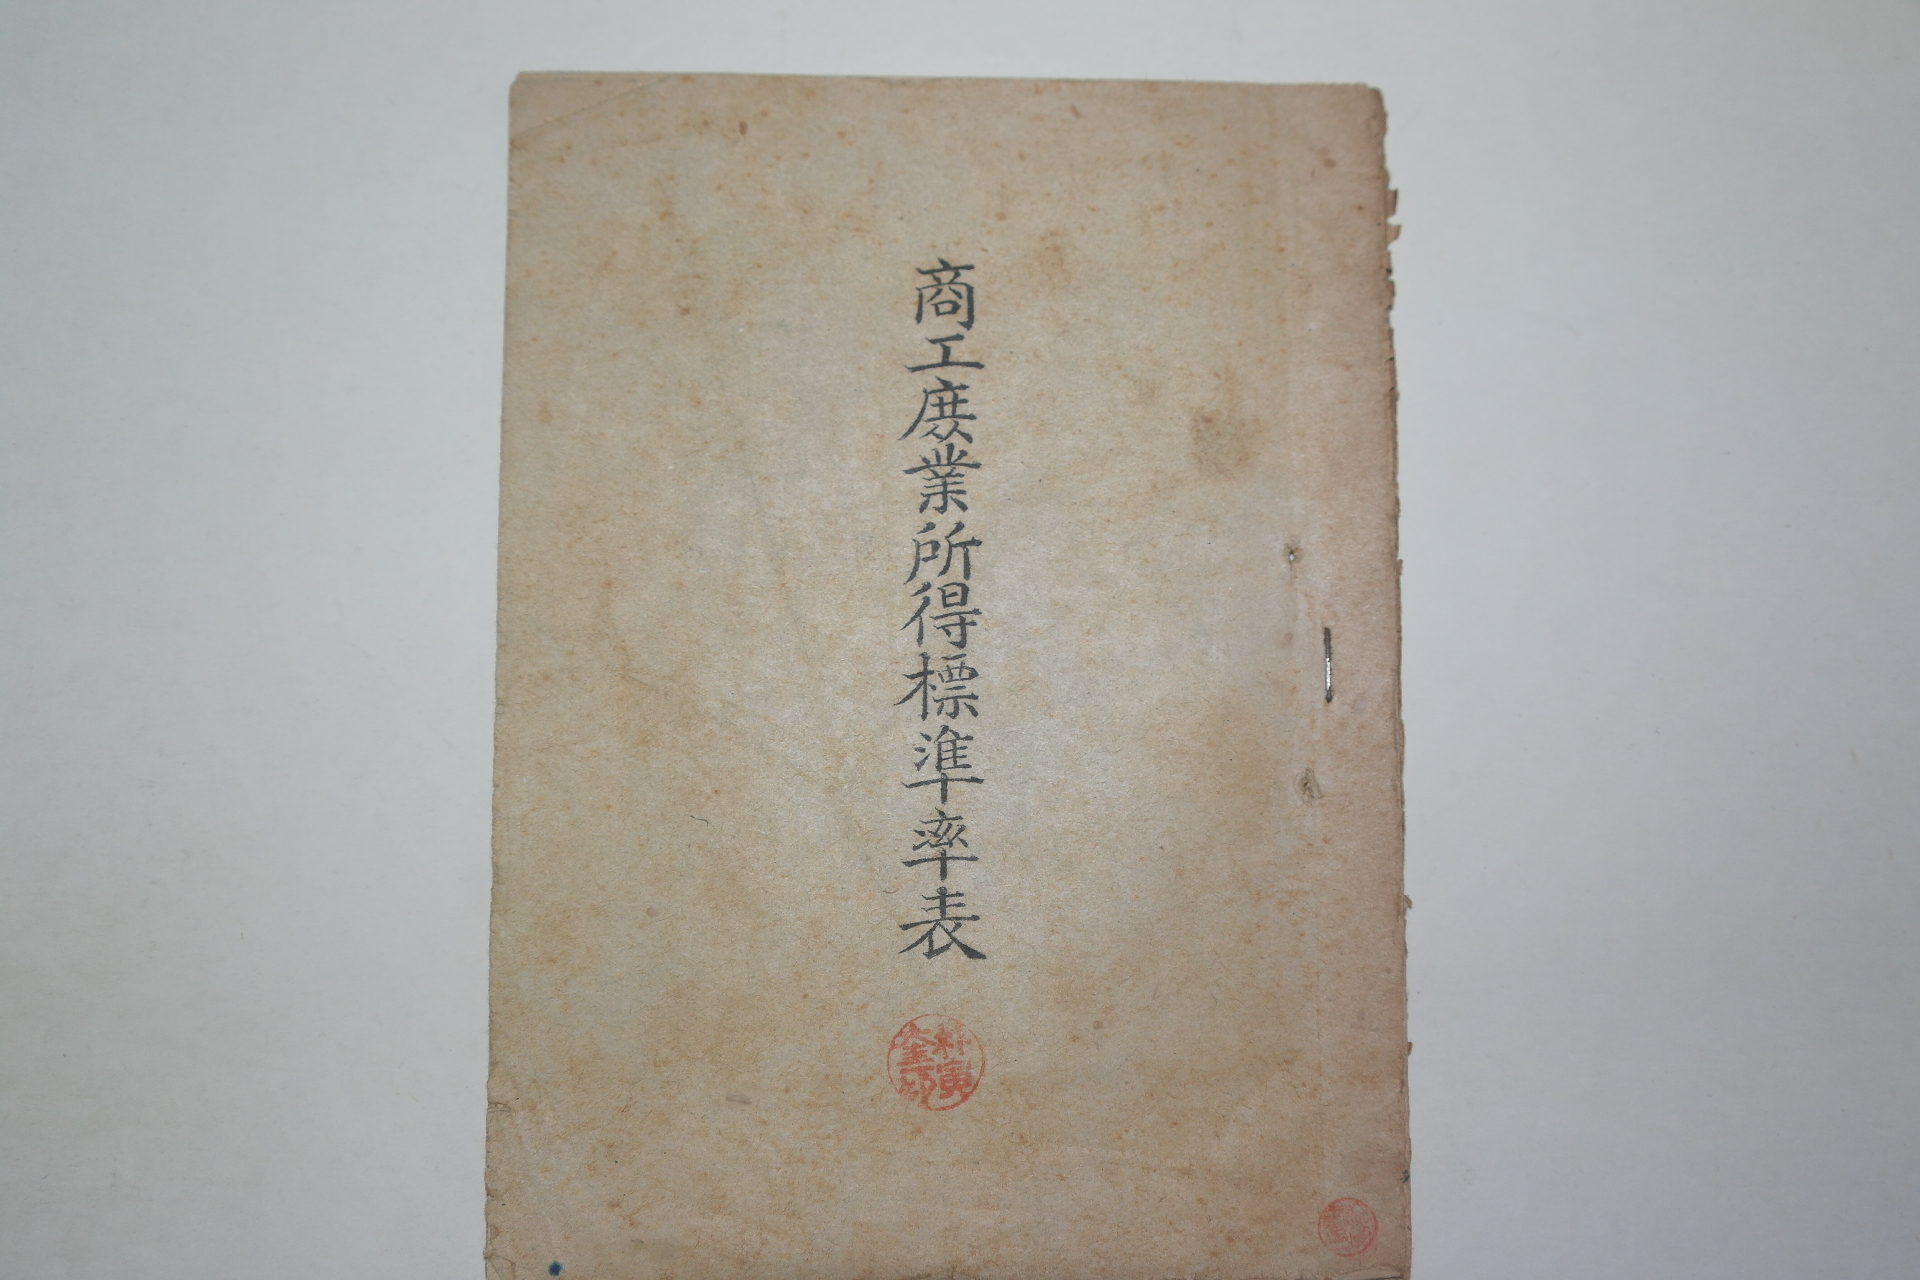 商工庻業所得標準率表